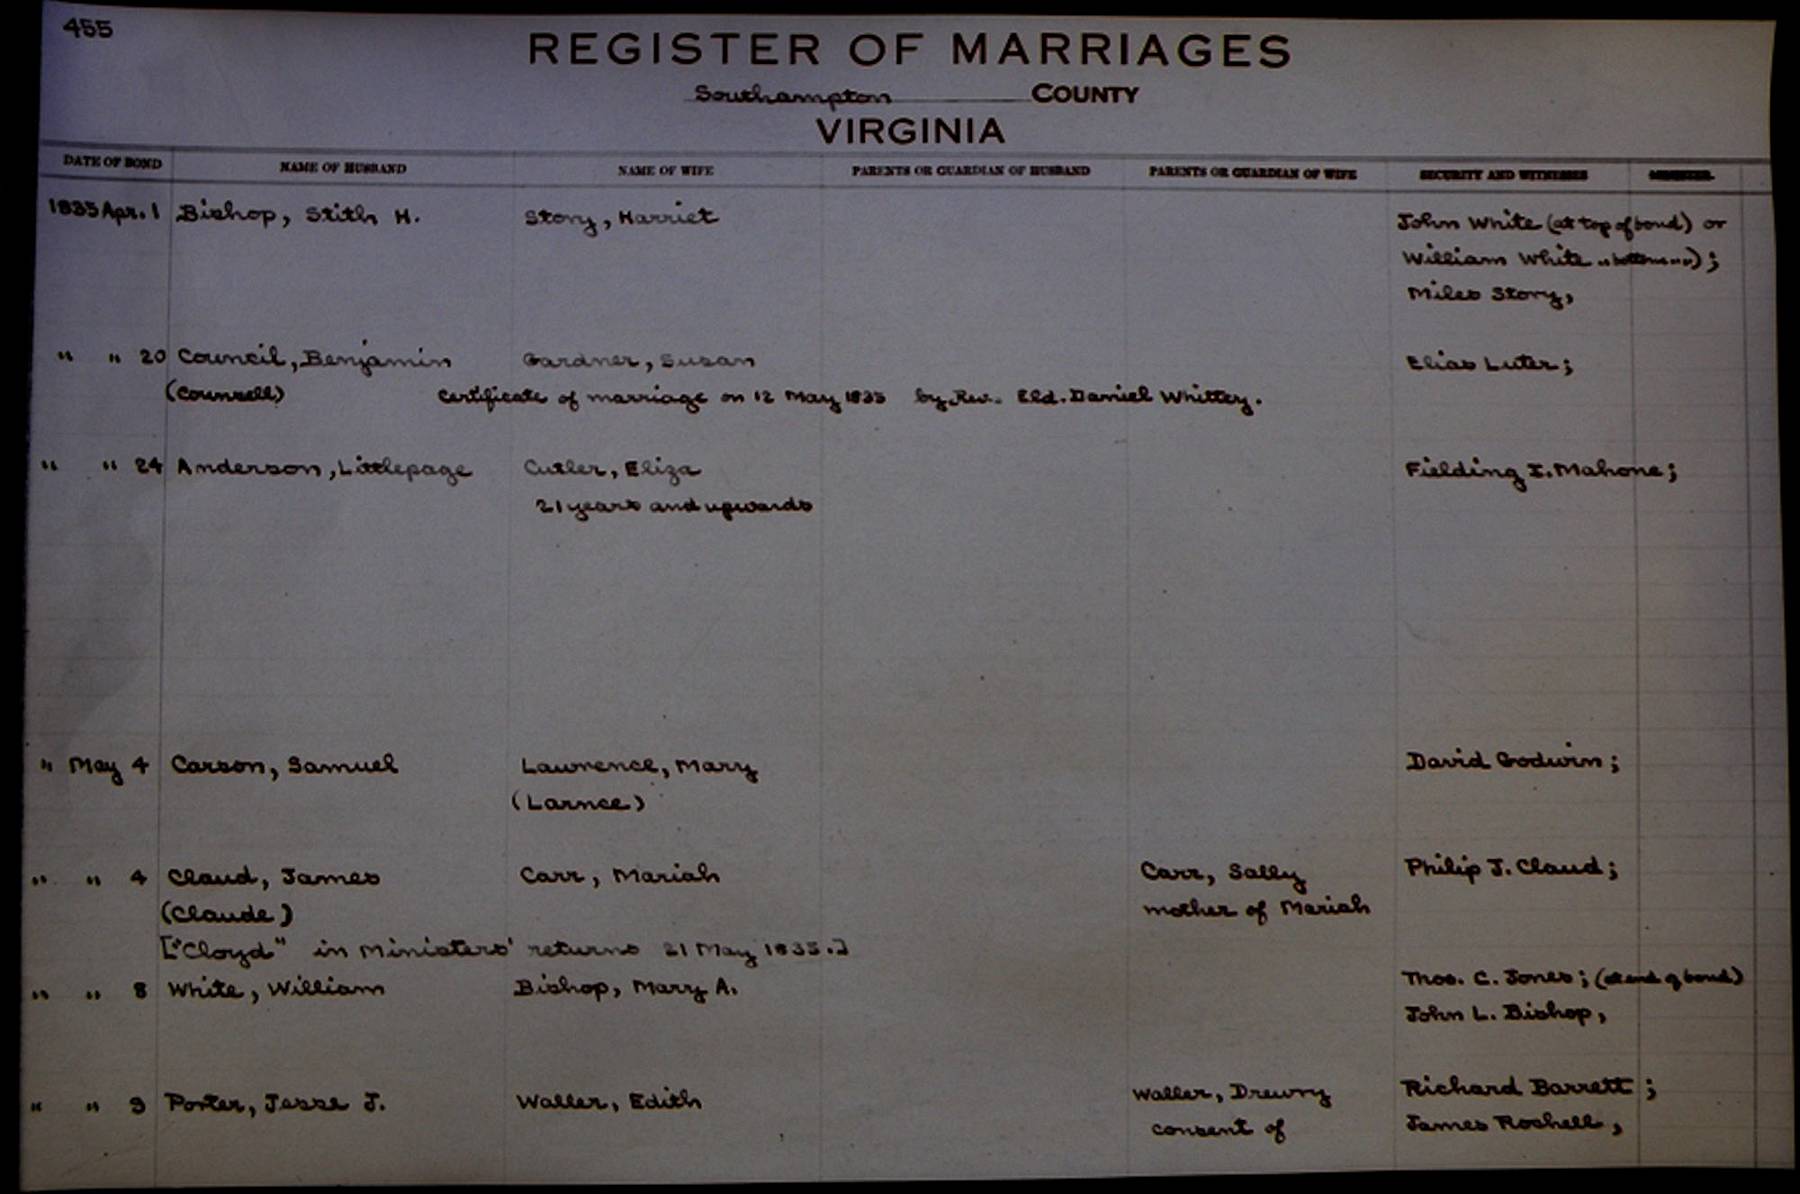 455
REGISTER OF MARRIAGES
Southampton COUNTY
VIRGINIA
DATE OF BOND NAME OF HUSBAND NAME OF WIFE PARENTS OR GUARDIAN OF HUSBAND PARENTS OR GUARDIAN OF WIFE SECURITY AND WITNESSES MINISTER.
1835 Apr. 1 Bishop, Stith H. Story, Harriet John White (at top of bond) or
William White „ bottom „ „) ;
Miles Story,
" " 20 Council, Benjamin Gardner, Susan Elias Luter;
(Counsell) Certificate of marriage on 12 May 1835 by Rev. Eld. Daniel Whittey.
" " 24 Anderson, Littlepage Cutler, Eliza Fielding I. Mahone;
21 years and upwards
" May 4 Carson, Samuel Lawrence, Mary David Godwin;
(Larnce)
" " 4 Claud, James Carr, Mariah Carr, Sally Philip J. Claud;
(Claude) mother of Mariah
["Cloyd" in Ministers' returns 21 May 1835.]
" " 8 White, William Bishop, Mary A. Thos. C. Jones; (at end of bond)
John L. Bishop,
" " 9 Porter, Jesse J. Waller, Edith Waller, Drewry Richard Barrett ;
consent of James Rochell,